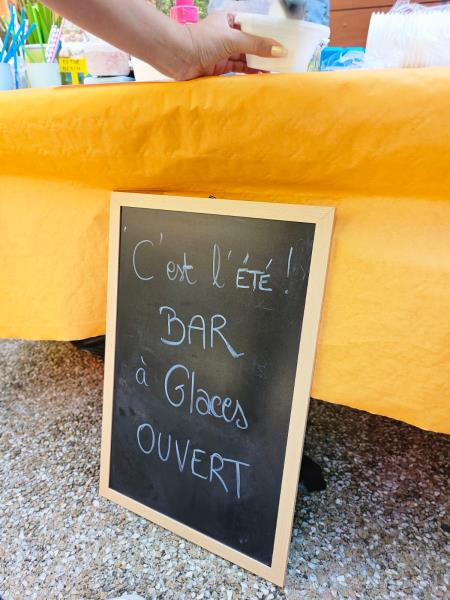 C'est l'ÉTÉ !
BAR
à Glaces
OUVERT